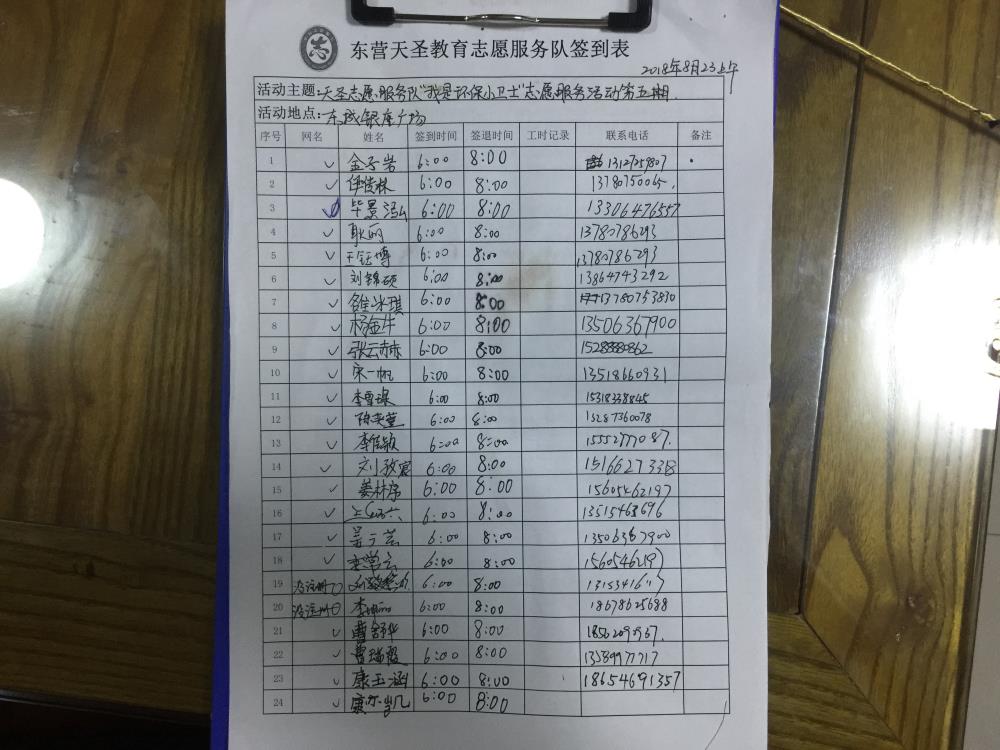 东营天圣教育志愿服务队签到表
2018年8月23上午
活动主题:天圣志愿服务队"我是环保小卫士"志愿服务活动第五期.
活动地点:东城银座广场
序号 网名 姓名 签到时间 签退时间 工时记录 联系电话 备注
1 ✓ 金子岩 6:00 8:00 13127059807
2 ✓ 6:00 8:00
3 ✓ 毕景泓 6:00 8:00 13306476557
4 ✓ 耿丽 6:00 8:00 13780786293
5 ✓ 6:00 8:00 13780786293
6 ✓ 刘锦硕 6:00 8:00 13864743292
7 ✓ 6:00 8:00 13780753830
8 ✓ 杨金牛 6:00 8:00 13506367900
9 ✓ 张云赫 6:00 8:00
10 ✓ 宋一帆 6:00 8:00 13518660931
11 ✓ 李雪璟 6:00 8:00 15318338845
12 ✓ 6:00 8:00 13287360078
13 ✓ 李佳颖 6:00 8:00 15552777087.
14 ✓ 刘孜宸 6:00 8:00 15166271338
15 ✓ 姜林序 6:00 8:00 15605462197
16 ✓ 6:00 8:00 13515463696
17 ✓ 6:00 8:00 13506367900
18 ✓ 6:00 8:00 15605462197
19 没注册 6:00 8:00
20 没注册 6:00 8:00 18678625688
21 ✓ 曹舒华 6:00 8:00
22 ✓ 曹瑞霞 6:00 8:00 13589977717
23 ✓ 康玉涵 6:00 8:00 18654691357
24 ✓ 康亦凯 6:00 8:00